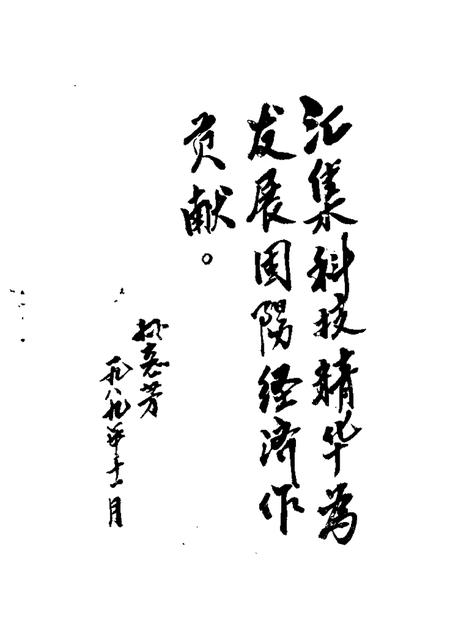 汇集科技精华为
发展固陽经济作
贡献。
志芳
一九八九年十一月